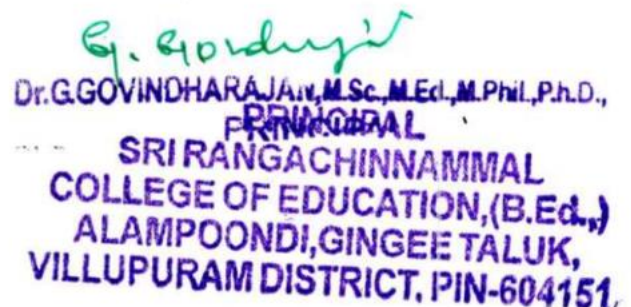 G. Govindhrajn
Dr.G.GOVINDHARAJAN,M.Sc.,M.Ed.,M.Phil.,P.h.D.,
PRINCIPAL
PRINCIPAL
SRI RANGACHINNAMMAL
COLLEGE OF EDUCATION,(B.Ed.,)
ALAMPOONDI,GINGEE TALUK,
VILLUPURAM DISTRICT, PIN-604151.